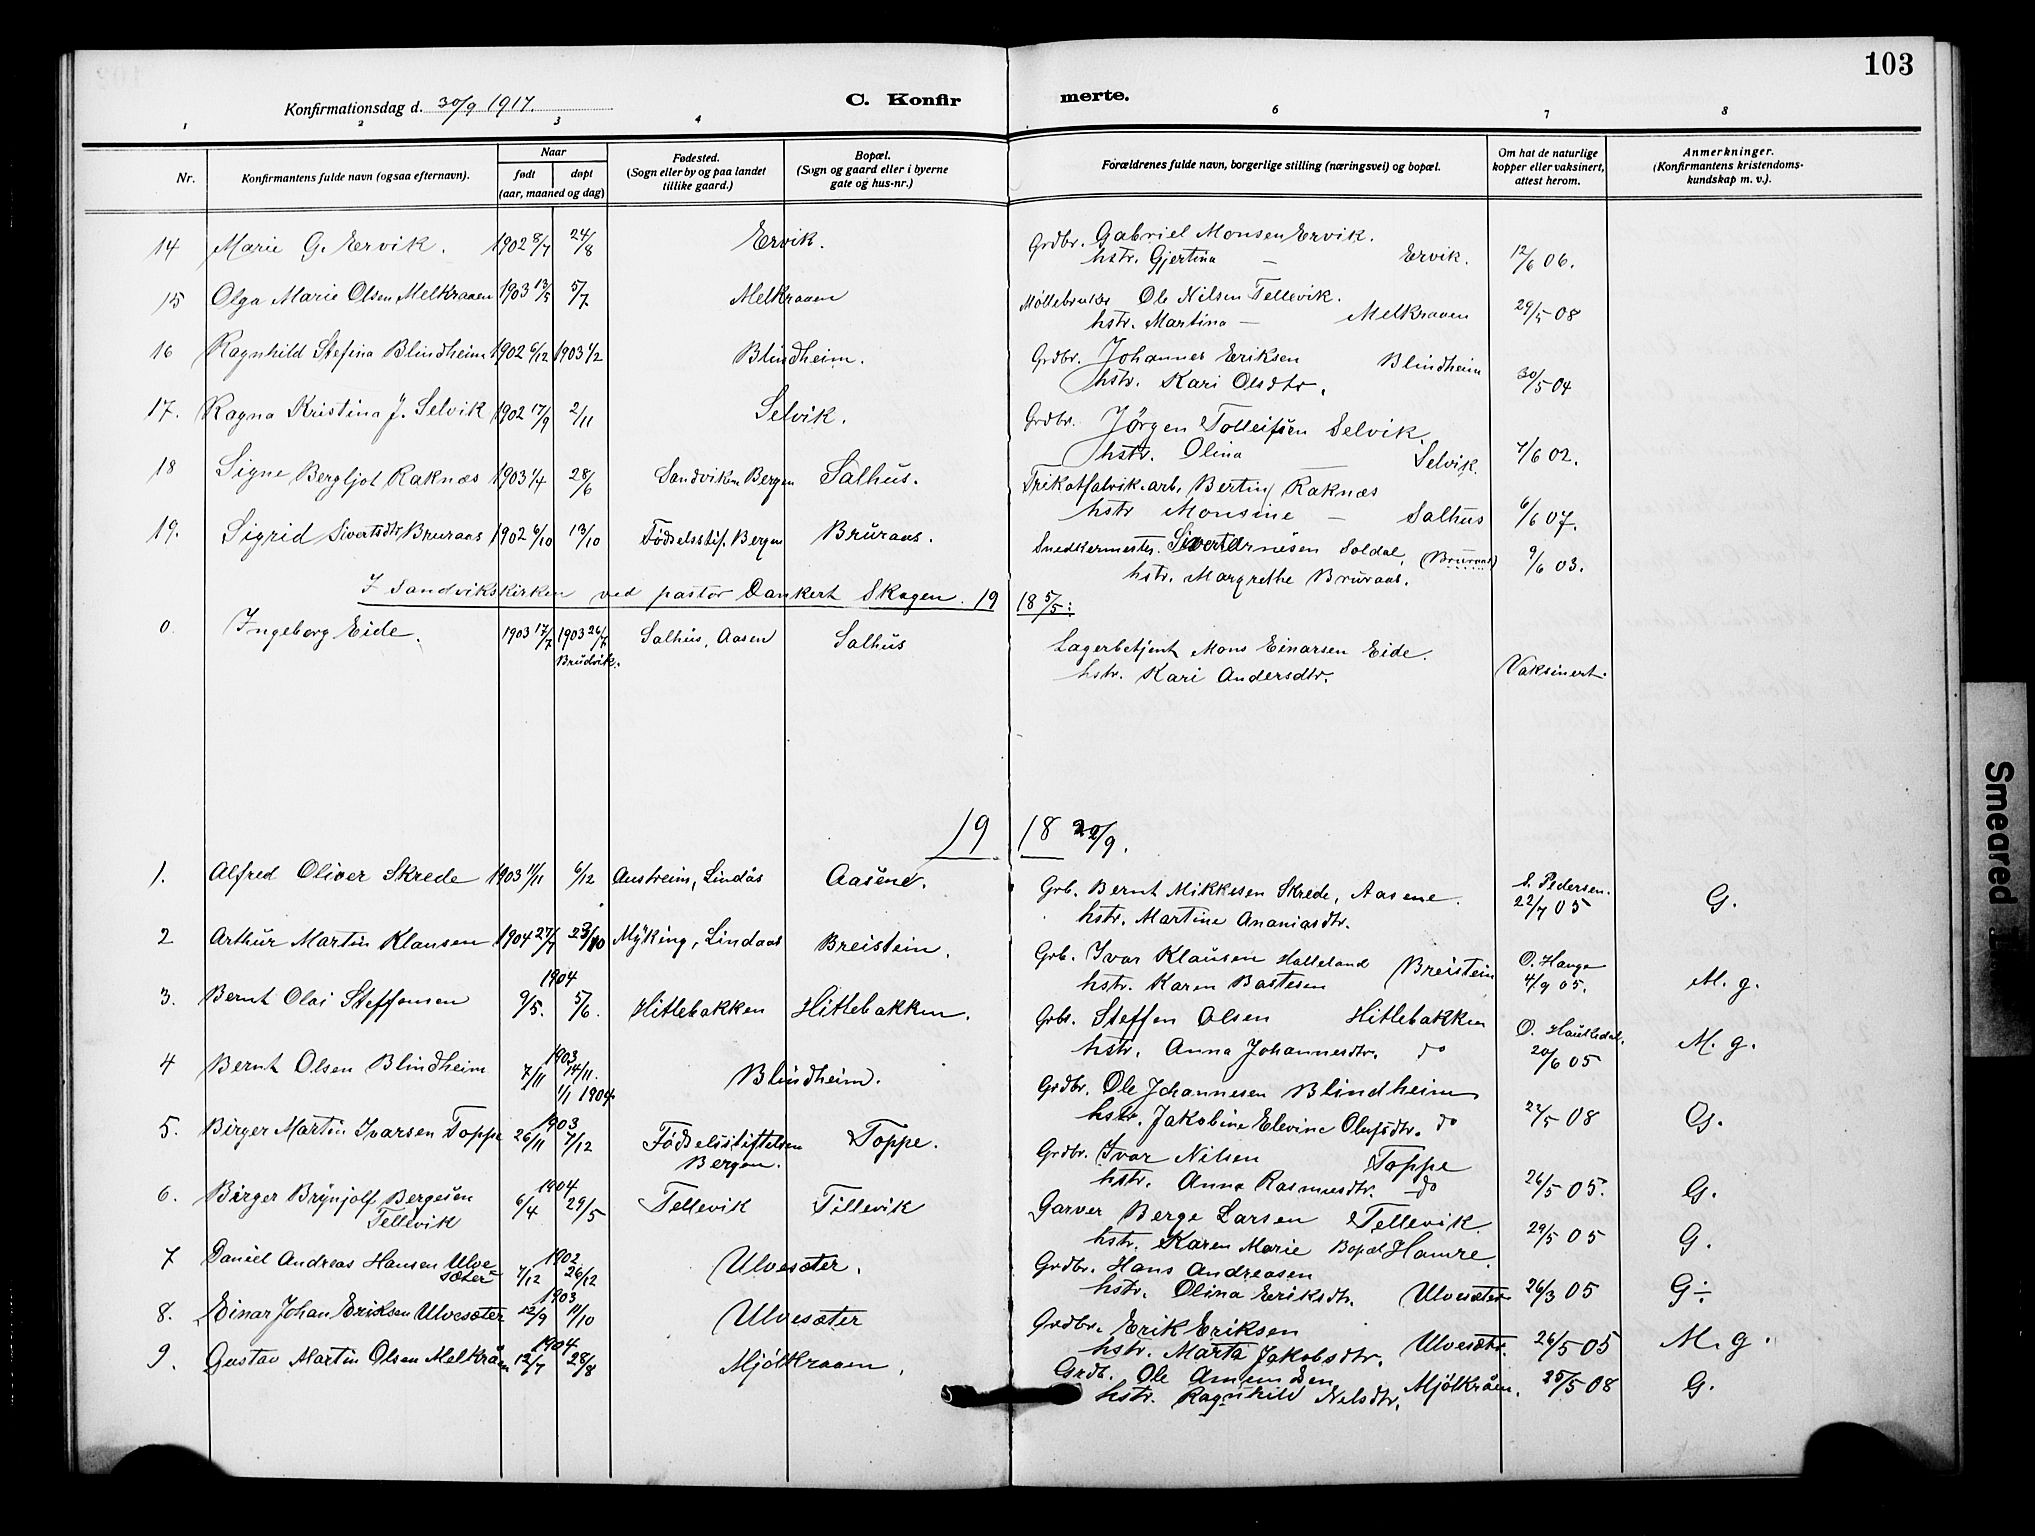 103
Konfirmationsdag d. 30/9 1917.
C. Konfirmerte.
1 2 3 4 6 7 8
Nr.
Konfirmantens fulde navn (ogsaa efternavn).
Naar
født døpt
(aar, maaned og dag)
Fødested.
(Sogn eller by og paa landet
tillike gaard.)
Bopæl.
(Sogn og gaard eller i byerne
gate og hus-nr.)
Forældrenes fulde navn, borgerlige stilling (næringsvei) og bopæl.
Om hat de naturlige
kopper eller vaksinert,
attest herom.
Anmerkninger.
(Konfirmantens kristendoms-
kundskap m. v.).
14 Marie G. Ervik. 1902 8/7 24/8 Ervik. Grdbr. Gabriel Monsen Ervik.
hstr. Gjertina — Ervik. 12/6 06.
15 Olga Marie Olsen Melkraaen 1903 13/5 5/7 Melkraaen Møllebruker Ole Nilsen Tellevik.
hstr. Martina — Melkraaen 29/5 08
16 Ragnhild Stefina Blindheim 1902 6/12 1903 1/2 Blindheim. Grdbr. Johannes Eriksen Blindheim
hstr. Kari Olsdtr. 30/5 04
17. Ragna Kristina J. Selvik 1902 17/9 2/11 Selvik. Grdbr. Jörgen Tolleifsen Selvik.
hstr. Olina — Selvik. 7/6 02.
18 Signe Bergljot Raknæs 1903 1/4 28/6 Sandviken Bergen Salhus. Trikotfabrik.arb. Bertin Raknæs
hstr Monsine — Salhus 6/6 07.
19. Sigrid Sivertsdtr. Bruraas 1902 6/10 13/10 Födselsstif. Bergen Bruraas. Snedkermester. Sivert Arnesen Soldal, (Bruraas)
hstr. Margrethe Bruraas. 9/6 03.
I Sandvikskirken ved pastor Dankert Skagen. 1918 5/5:
0. Ingeborg Eide. 1903 17/7 1903 26/7 Salhus, Aasen Salhus Lagerbetjent Mons Einarsen Eide.
Brudvik. hstr. Kari Andersdtr. Vaksinert.
1918 22/9.
1. Alfred Oliver Skrede 1903 11/11 6/12 Austreim, Lindås Aasene. Grb. Bernt Mikkesen Skrede, Aasene.
hstr. Martine Ananiasdtr. S. Pedersen. 22/7 05 G.
2 Arthur Martin Klausen 1904 27/7 23/10 Myking, Lindaas Breistein. Grb. Ivar Klausen Halleland Breistein
hstr. Karen Bastesen O. Hauge 4/9 05. M. g.
3. Bernt Olai Steffensen 1904 9/5. 5/6. Hitlebakken Hitlebakken. Grbr. Steffen Olsen Hitlebakken
hstr. Anna Johannesdtr. do O. Haukedal. 20/6 05 M. g.
4 Bernt Olsen Blindheim 1903 7/11 14/11. Blindheim. Grdbr. Ole Johannesen Blindheim
1/1 1904. hstr. Jakobine Elevine Olufsdtr. do 22/5 08 G.
5. Birger Martin Ivarsen Toppe 1903 26/11 7/12 Födselsstiftelsen Toppe. Grdbr. Ivar Nilsen Toppe
Bergen. hstr. Anna Rasmusdtr. do 26/5 05. G.
6. Birger Brynjolf Bergesen 1904 6/4 29/5 Tellevik Tellevik Garver Berge Larsen Tellevik.
Tellevik hstr. Karen Marie Bopæl Hamre. 29/5 05 G.
7 Daniel Andreas Hansen Ulve 1902 7/12 26/12 Ulvesæter. Grdbr. Hans Andreasen
sæter hstr. Olina Eriksdtr. Ulvesæter 26/3 05 G÷
8. Einar Johan Eriksen Ulvesæter 1903 12/9 11/10 Ulvesæter Grdbr. Erik Eriksen
hstr. Marta Jakobsdtr. Ulvesætr. 26/5 05 M. g.
9. Gustav Martin Olsen Melkråen 1904 12/7 28/8 Mjölkraaen. Grdb. Ole Amundsen
hstr. Ragnhild Nilsdtr. Mjölkråen. 25/5 08 G.
Smeared